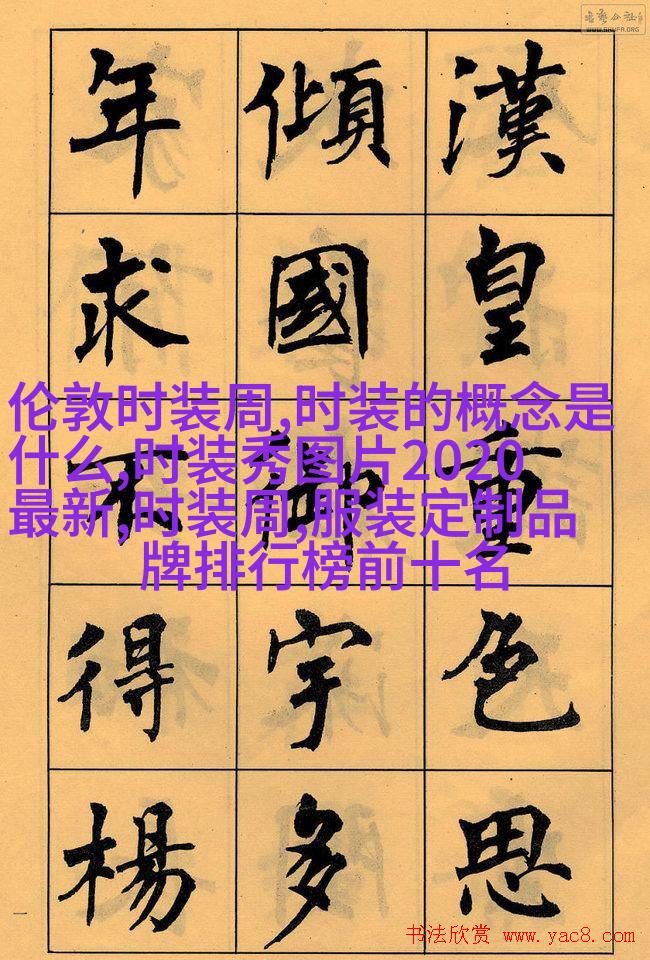 漢皇重色思
傾國御宇多
年求不得楊
伦敦时装周,时装的概念是
什么,时装秀图片2020
最新,时装周,服装定制品
牌排行榜前十名
WWW.SHUFA.ORG
一
书法欣赏 www.yac8.com